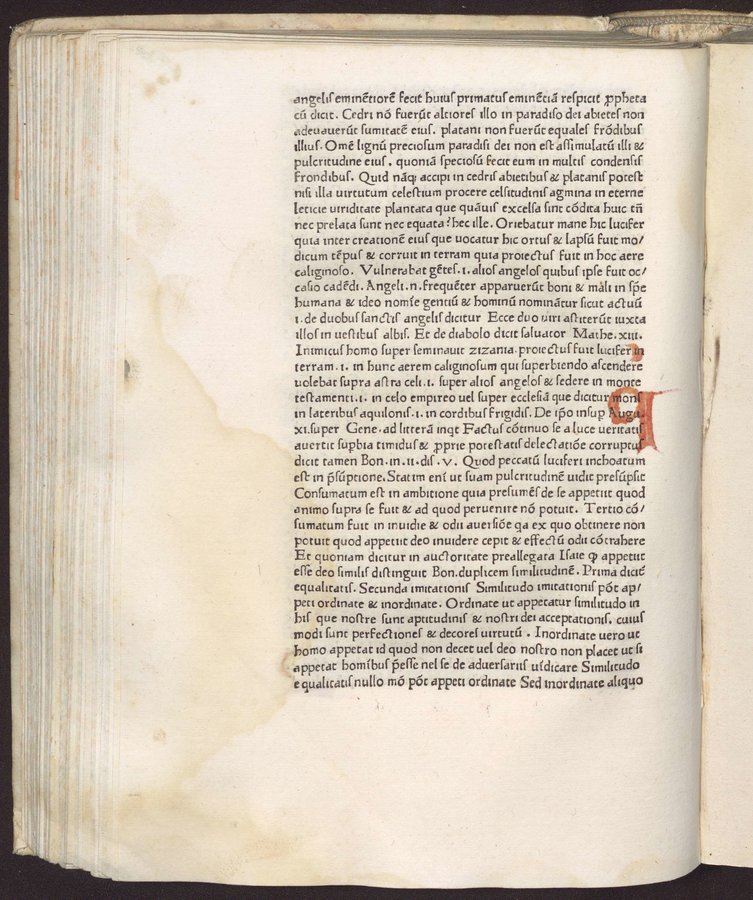 angelis eminẽtiorẽ fecit huius primatus eminẽtiã respicit ꝓpheta
cũ dicit. Cedri nõ fuerũt altiores illo in paradiso dei abietes non
adeuauerũt sumitatẽ eius. platani non fuerũt equales frõdibus
illius. Omẽ lignũ preciosum paradisi dei non est assimulatũ illi &
pulcritudine eius. quoniã speciosũ fecit eum in multis condensis
frondibus. Quid nãq; accipi in cedris abietibus & platanis potest
nisi illa uirtutum celestium procere celsitudinis agmina in eterne
leticie uiriditate plantata que quãuis excelsa sint cõdita huic tñ
nec prelata sunt nec equata? hec ille. Oriebatur mane hic lucifer
quia inter creationẽ eius que uocatur hic ortus & lapsũ fuit mo/
dicum tẽpus & corruit in terram quia proiectus fuit in hoc aere
caliginoso. Vulnerabat gẽtes.i.alios angelos quibus ipse fuit oc/
casio cadẽdi. Angeli.n.frequẽter apparuerũt boni & mali in sp̃e
humana & ideo nomĩe gentiũ & hominũ nominãtur sicut actuũ
i.de duobus sanctis angelis dicitur Ecce duo uiri astiterũt iuxta
illos in uestibus albis. Et de diabolo dicit saluator Mathe.xiii.
Inimicus homo super seminauit zizania.proiectus fuit lucifer in
terram.i.in hunc aerem caliginosum qui superbiendo ascendere
uolebat supra astra celi.i.super alios angelos & sedere in monte
testamenti.i.in celo empireo uel super ecclesiã que dicitur mons
in lateribus aquilonis.i.in cordibus frigidis. De ip̃o insup Augu.
xi.super Gene.ad litterã inqt Factus cõtinuo se a luce ueritatis
auertit sup̱bia timidus & ꝓprie potestatis delectatiõe corruptus
dicit tamen Bon.in.ii.dis.v. Quod peccatũ luciferi inchoatum
est in p̃sũptione. Statim eni ut suam pulcritudinẽ uidit presũpsit
Consumatum est in ambitione quia presumẽs de se appetiit quod
animo supra se fuit & ad quod peruenire nõ potuit. Tertio cõ/
sumatum fuit in inuidie & odii auersiõe qa ex quo obtinere non
potuit quod appetiit deo inuidere cepit & effectũ odii cõtrahere
Et quoniam dicitur in auctoritate preallegata Isaie ꝙ appetiit
esse deo similis distinguit Bon.duplicem similitudinẽ. Prima dicit̃
equalitatis. Secunda imitationis Similitudo imitationis põt ap/
peti ordinate & inordinate. Ordinate ut appetatur similitudo in
his que nostre sunt aptitudinis & nostri dei acceptationis. cuius
modi sunt perfectiones & decores uirtutũ. Inordinate uero ut
homo appetat id quod non decet uel deo nostro non placet ut si
appetat homĩbus p̃esse uel se de aduersariis uĩdicare Similitudo
equalitatis nullo mõ põt appeti ordinate Sed inordinate aliquo